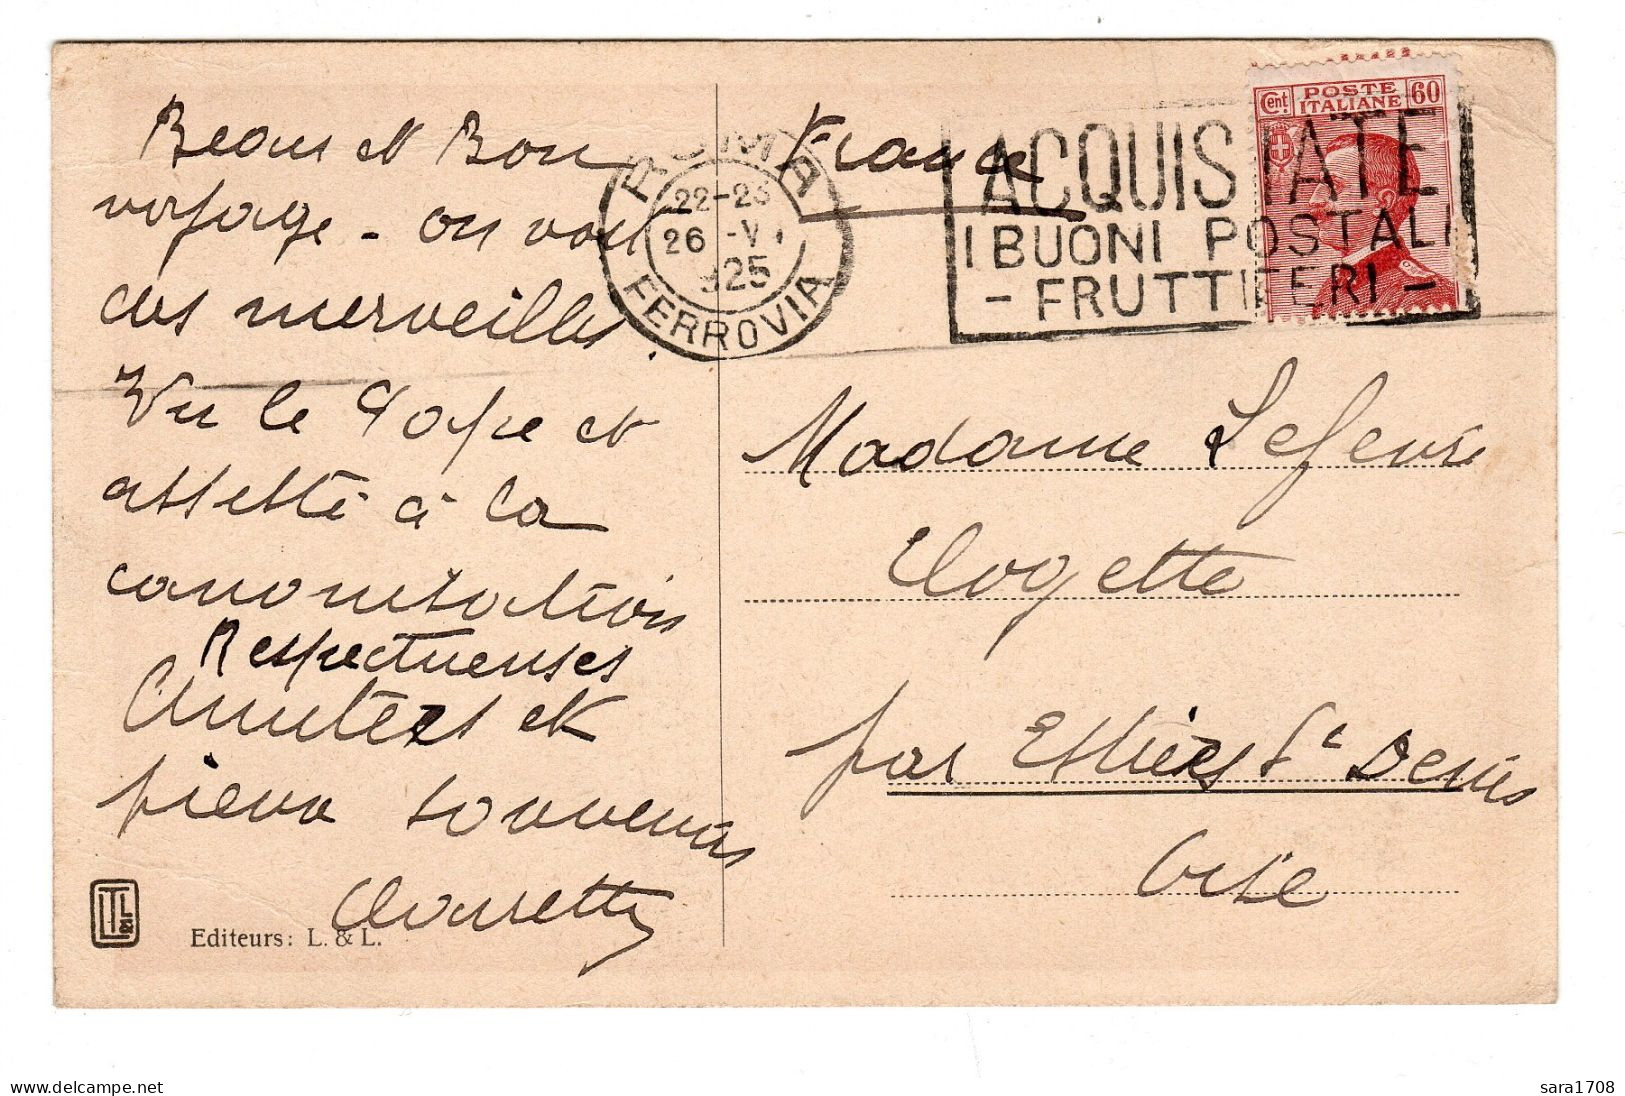 Beau et Bon
voyage - on voit
des merveilles.
Vu le Pape et
assisté à la
canonisation
Respectueuses
Amitiés et
pieux souvenirs
Editeurs: L. & L.
ROMA
22-23
26 -V
925
FERROVIA
France
ACQUISTATE
I BUONI POSTALI
- FRUTTIFERI -
Cent. POSTE ITALIANE 60
Madame Lefevre
Clogette
par Estrées St Denis
Oise
sara1708